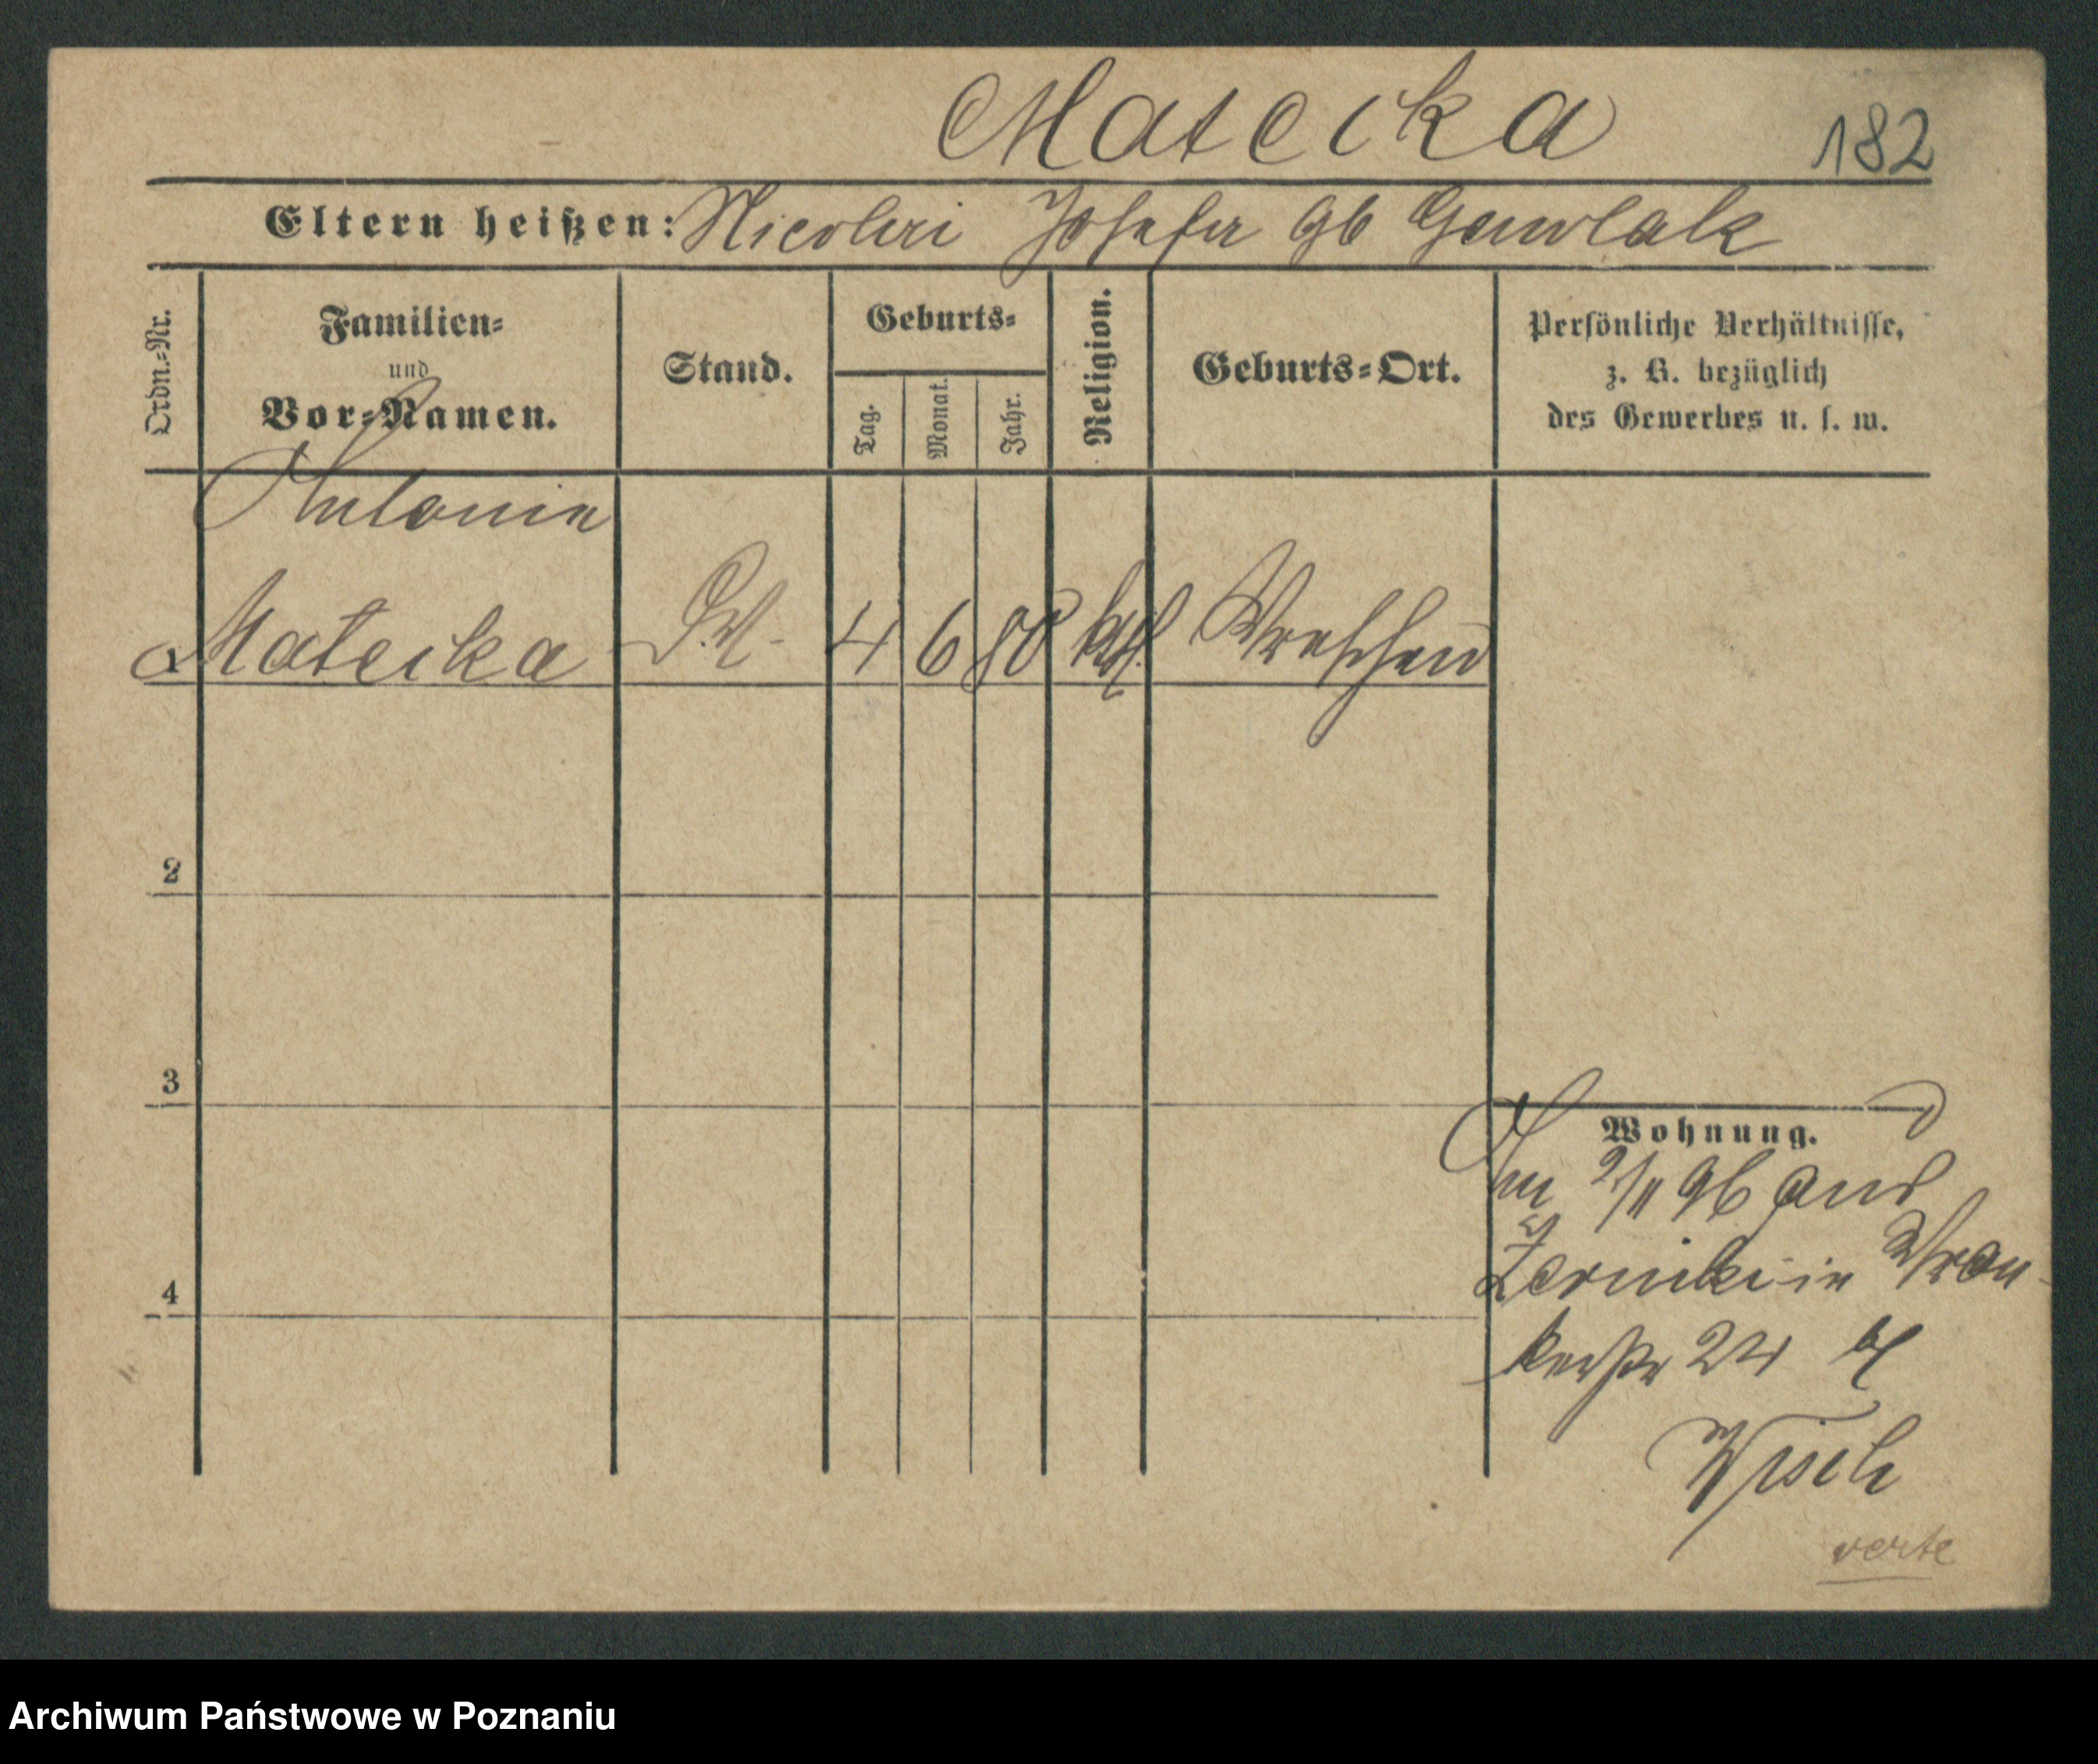 Mateika
182
Eltern heißen: Nicolai Josefa gb Gawlak
Ordn.-Nr.
Familien-
und
Vor-Namen.
Stand.
Geburts-
Tag.
Monat.
Jahr.
Religion.
Geburts-Ort.
Persönliche Verhältnisse,
z. B. bezüglich
des Gewerbes u. s. w.
Antonie
1 Mateika D.M. 4 6 80 kath. Wreschen
2
3
4
Wohnung.
Am 2/11 96 aus
Zerniki in Wron-
kerstr 24 b/
verte
Archiwum Państwowe w Poznaniu